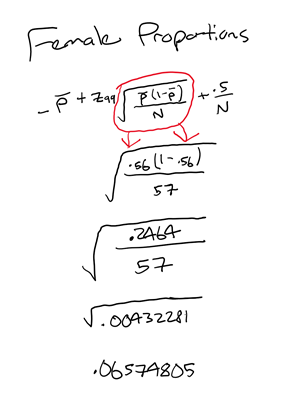 Female Proportions
- p̄ + z99 √(p̄(1-p̄)/N) + .5/N
√(.56(1-.56)/57)
√(.2464/57)
√.00432281
.06574805